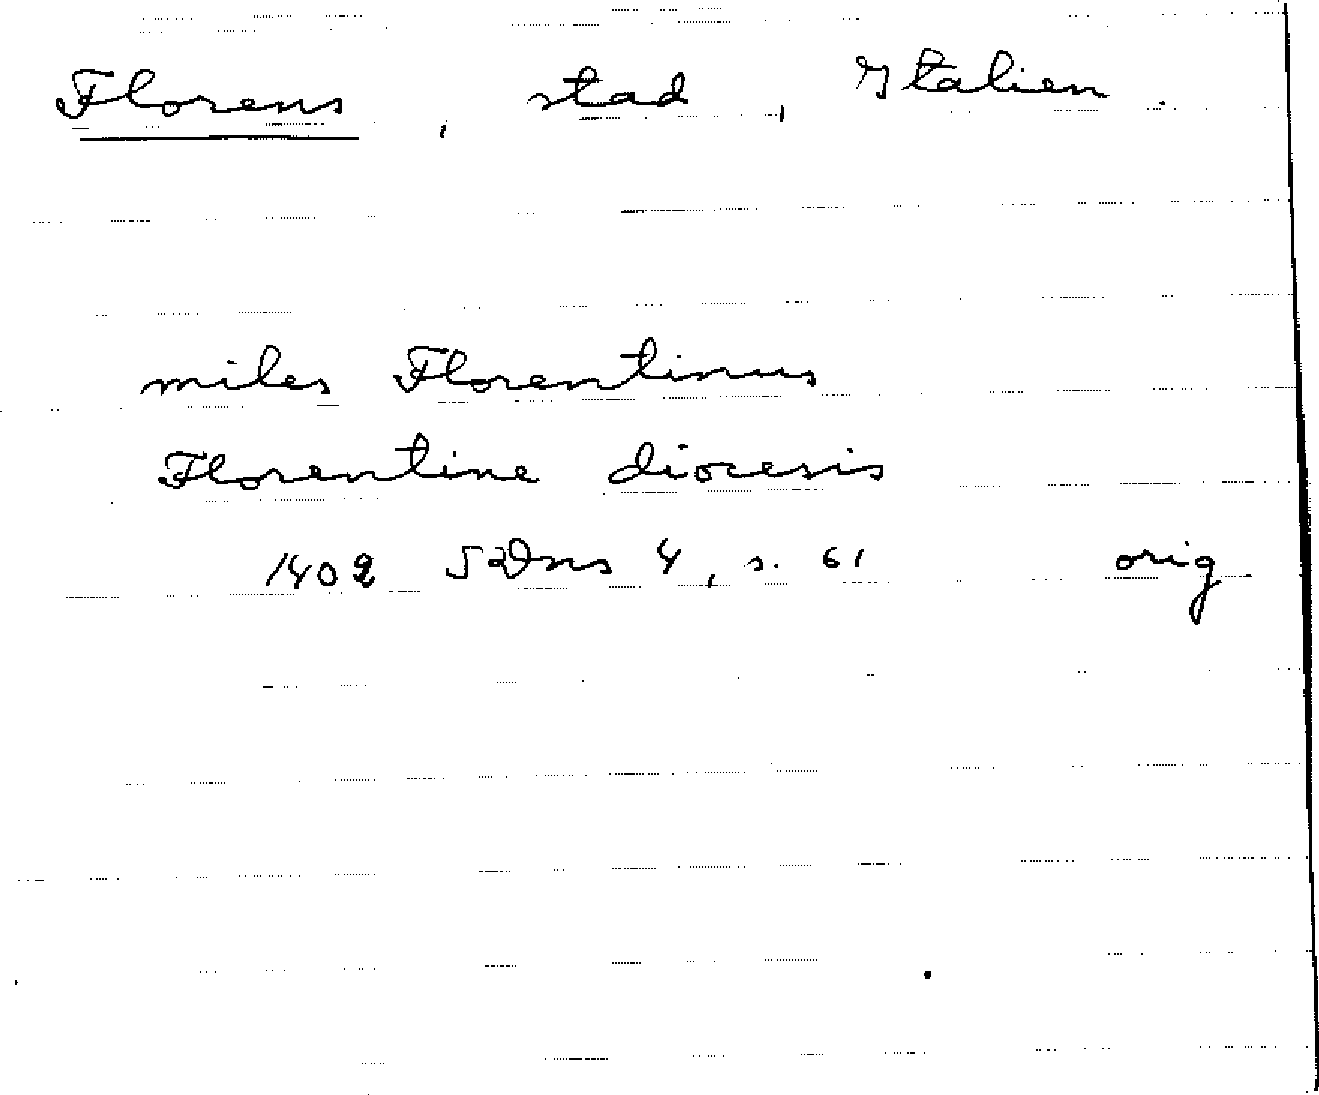 Florens, stad, Italien.
miles Florentinus
Florentine diocesis
1402 SDns 4, s. 61 orig